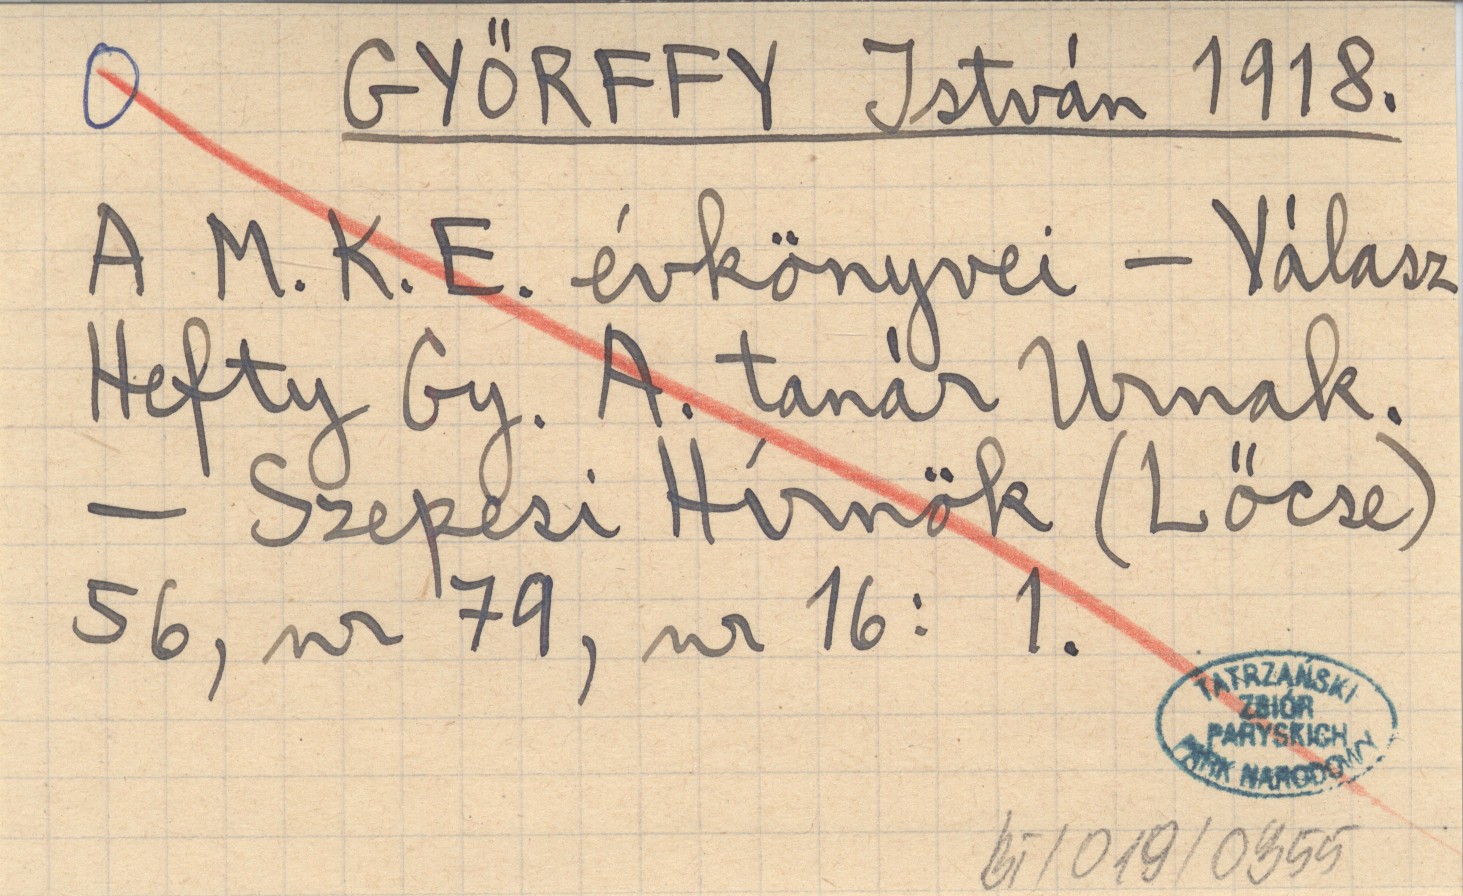 O GYŐRFFY István 1918.
A M. K. E. évkönyvei – Válasz
Hefty Gy. A. tanár Urnak.
– Szepesi Hírnök (Lőcse)
56, nr 79, nr 16: 1.
TATRZAŃSKI
ZBIÓR
PARYSKICH
PARK NARODOWY
bi/019/0355